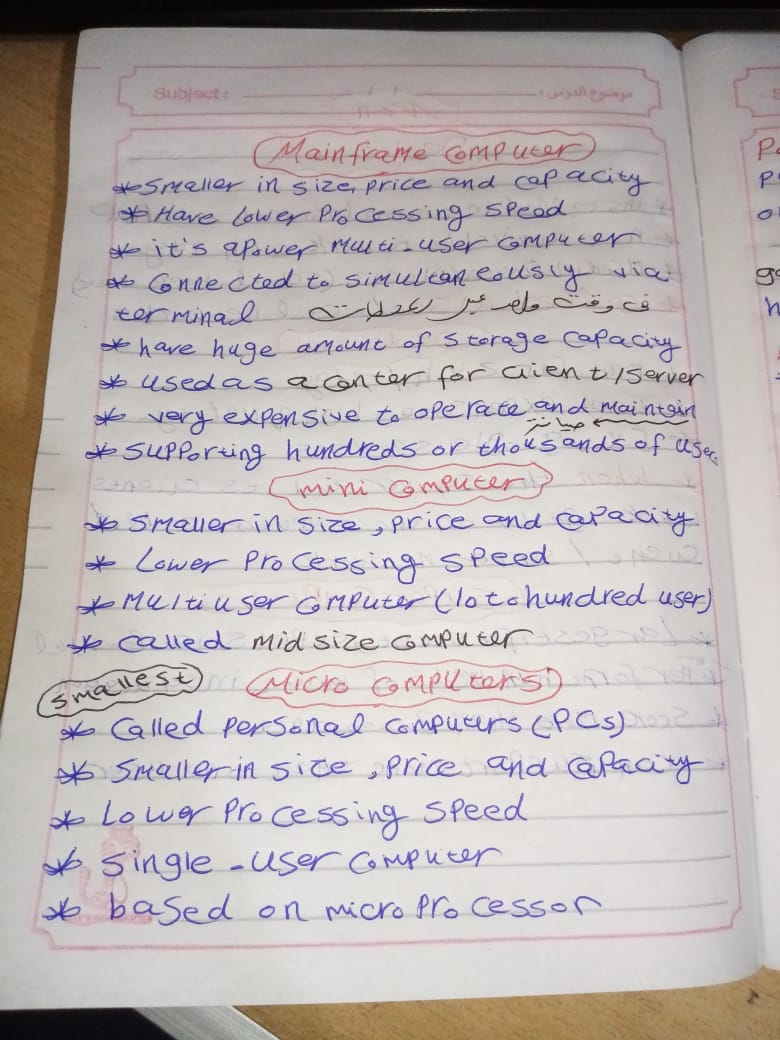 Subject: موضوع الدرس:
Mainframe computer
* Smaller in size, price and capacity
* Have lower processing speed
* it's a power multi-user computer
* Connected to simultaneously via
terminal في وقت واحد عبر
* have huge amount of storage capacity
* used as a center for client/server
* very expensive to operate and maintain
صيانة
* supporting hundreds or thousands of user
mini computer
* smaller in size, price and capacity
* Lower processing speed
* Multi user computer (10 to hundred user)
* called midsize computer
smallest Micro computers
* Called personal computers (PCs)
* Smaller in size, price and capacity
* Lower processing speed
* single-user computer
* based on microprocessor